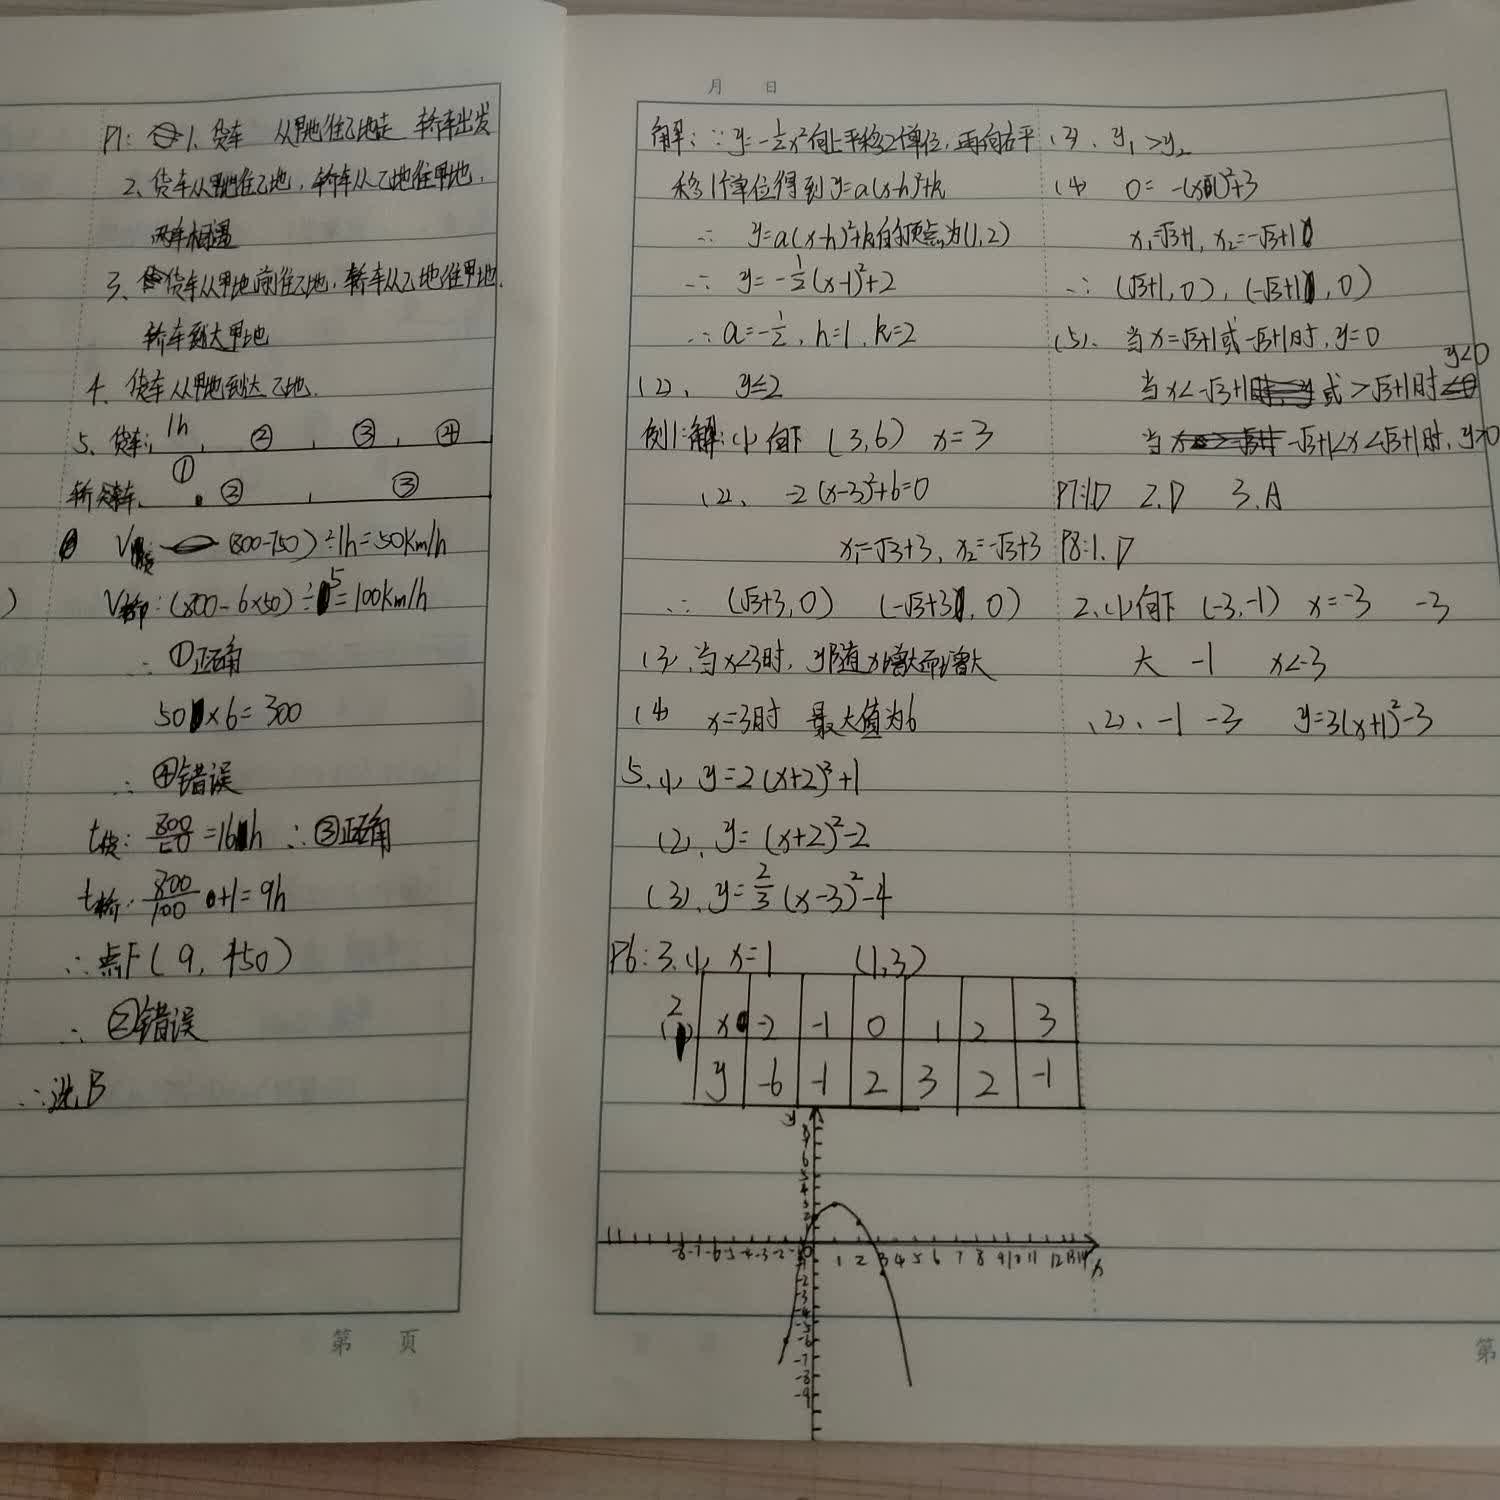 P1: 1、货车 从甲地往乙地走 轿车出发
2、货车从甲地往乙地，轿车从乙地往甲地，
两车相遇
3、货车从甲地前往乙地，轿车从乙地往甲地.
轿车到达甲地
4、货车从甲地到达乙地.
5、货车: 1h ① , ② , ③ , ④
轿车、 ② , ③
(800-750)÷1h=50km/h
V轿:(800-6×50)÷5=100km/h
∴ ①正确
50×6=300
∴ ④错误
t货: =16h ∴③正确
t轿: 800/100+1=9h
∴点F(9, 450)
∴ ②错误
∴选B
第 页
月 日
解:∵y=-1/2x²向上平移2个单位,再向右平
移1个单位得到y=a(x-h)²+k
∴ y=a(x-h)²+k的顶点为(1,2)
∴ y=-1/2(x-1)²+2
∴a=-1/2, h=1, k=2
(2)、 y≤2
例1:解:(1) 向下 (3,6) x=3
(2)、 -2(x-3)²+6=0
x₁=√3+3, x₂=-√3+3
∴ (√3+3,0) (-√3+3,0)
(3)、当x<3时, y随x增大而增大
(4) x=3时 最大值为6
5.(1) y=2(x+2)²+1
(2)、y=(x+2)²-2
(3)、y=2/3(x-3)²-4
P6:3.(1) x=1 (1,3)
(2) x -2 -1 0 1 2 3
y -6 -1 2 3 2 -1
y
8
7
6
5
4
3
2
1
-8 -7 -6 -5 -4 -3 -2 -1 0 1 2 3 4 5 6 7 8 9 10 11 12 13 14 x
-1
-2
-3
-4
-5
-6
-7
-8
-9
(3)、y₁>y₂
(4) 0=-(x-1)²+3
x₁=√3+1, x₂=-√3+1
∴ (√3+1,0), (-√3+1,0)
(5)、当x=√3+1或-√3+1时, y=0
当x<-√3+1或>√3+1时 y<0
当-√3+1<x<√3+1时, y>0
P7:1.D 2.D 3.A
P8:1.D
2.(1)向下 (-3,-1) x=-3 -3
大 -1 x<-3
(2)、-1 -3 y=3(x+1)²-3
第